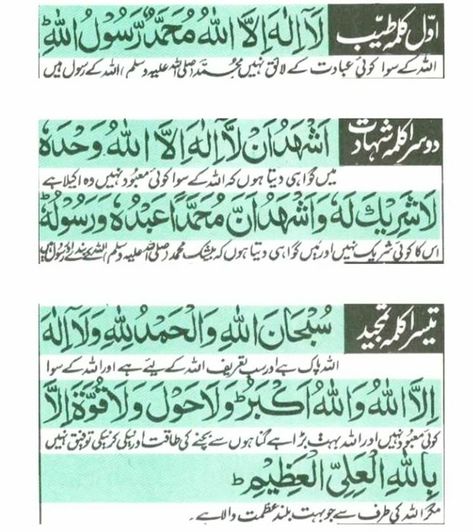 اوّل کلمہ طیّب لَآ اِلٰهَ اِلَّا اللهُ مُحَمَّدٌ رَّسُوْلُ اللهِ ؕ
اللہ کے سوا کوئی عبادت کے لائق نہیں محمّد (صلی اللہ علیہ وسلم) اللہ کے رسول ہیں
دوسرا کلمہ شہادت اَشْهَدُ اَنْ لَّآ اِلٰهَ اِلَّا اللهُ وَحْدَهٗ
میں گواہی دیتا ہوں کہ اللہ کے سوا کوئی معبود نہیں وہ اکیلا ہے
لَا شَرِيْكَ لَهٗ وَاَشْهَدُ اَنَّ مُحَمَّدًا عَبْدُهٗ وَرَسُوْلُهٗ ؕ
اس کا کوئی شریک نہیں اور میں گواہی دیتا ہوں کہ بیشک محمد (صلی اللہ علیہ وسلم) اللہ کے بندے اور رسول ہیں
تیسرا کلمہ تمجید سُبْحَانَ اللهِ وَالْحَمْدُ لِلّٰهِ وَلَآ اِلٰهَ
اللہ پاک ہے اور سب تعریف اللہ کے لیئے ہے اور اللہ کے سوا
اِلَّا اللهُ وَاللهُ اَكْبَرُ ؕ وَلَا حَوْلَ وَلَا قُوَّةَ اِلَّا
کوئی معبود نہیں اور اللہ بہت بڑا ہے گناہوں سے بچنے کی طاقت اور نیکی کرنیکی توفیق نہیں
بِاللهِ الْعَلِيِّ الْعَظِيْمِ ؕ
مگر اللہ کی طرف سے جو بہت بلند عظمت والا ہے۔